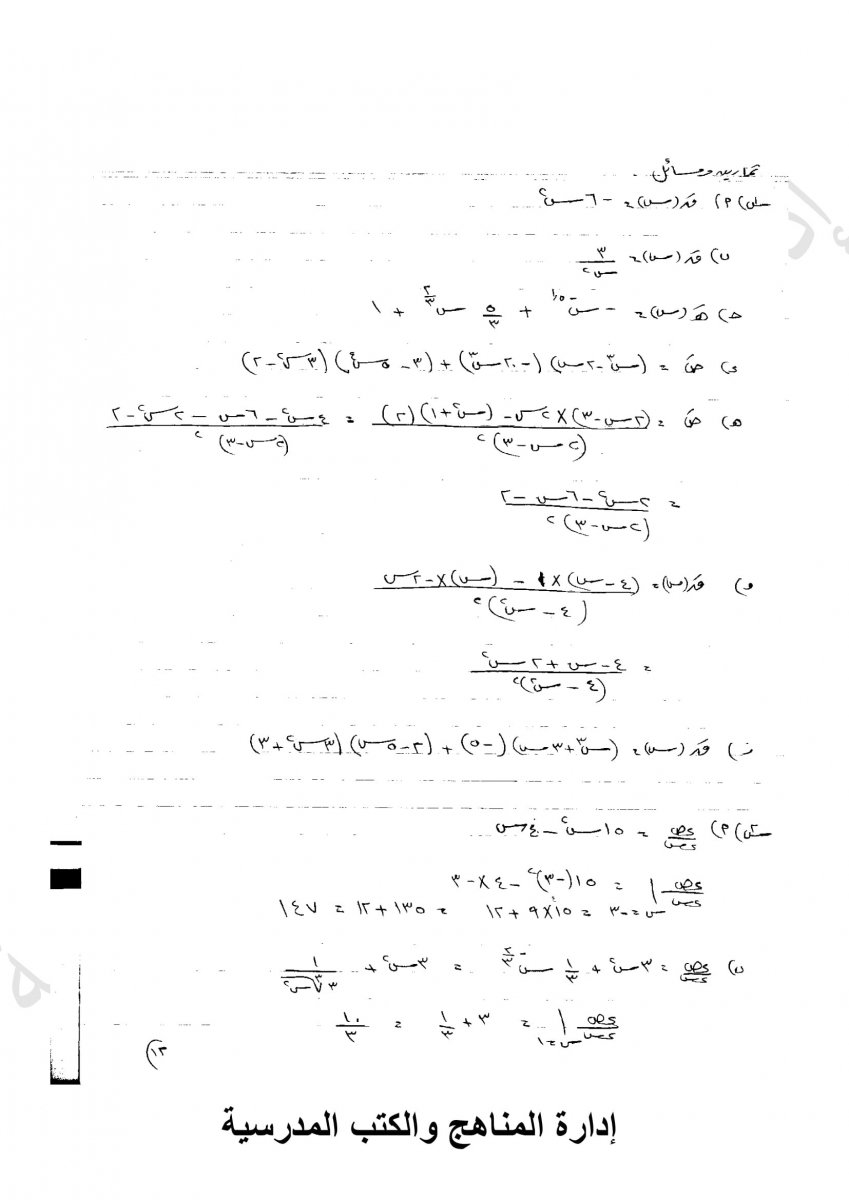 تمارين ومسائل
س١) ٢) قَ(س) = -٦س٢
ب) قَ(س) = ٣/س٢
ج) هَـ(س) = -س-١٥ + ٥/٣ س٢/٣ + ١
د) صَ = (س٣-٢س)(-٢٠س٣) + (٣-٥س٤)(٣س٢-٢)
هـ) صَ = (٢س-٣)×٢س-(س٢+١)(٢)/(٢س-٣)٢ = ٤س٢-٦س-٢س٢-٢/(٢س-٣)٢
= ٢س٢-٦س-٢/(٢س-٣)٢
و) قَ(س) = (٤-س)×١-(س)×-٢س/(٤-س٢)٢
= ٤-س+٢س٢/(٤-س٢)٢
ز) قَ(س) = (س٣+٣س)(-٥)+(٢-٥س)(٣س٢+٣)
س٢) ٢) دص/دس = ١٥س٢-٤س
دص/دس | س=-٣ = ١٥(-٣)٢-٤×-٣
= ١٥×٩+١٢ = ١٣٥+١٢ = ١٤٧
ب) دص/دس = ٣س٢+١/٣ س-٢/٣ = ٣س٢+١/٣∛س٢
دص/دس | س=١ = ٣+١/٣ = ١٠/٣
(١٣
إدارة المناهج والكتب المدرسية